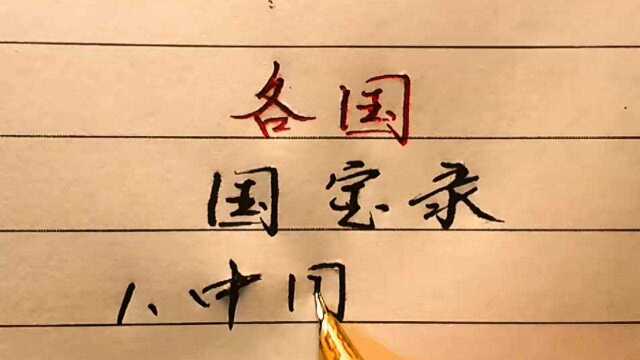 各国
国宝录
1、中